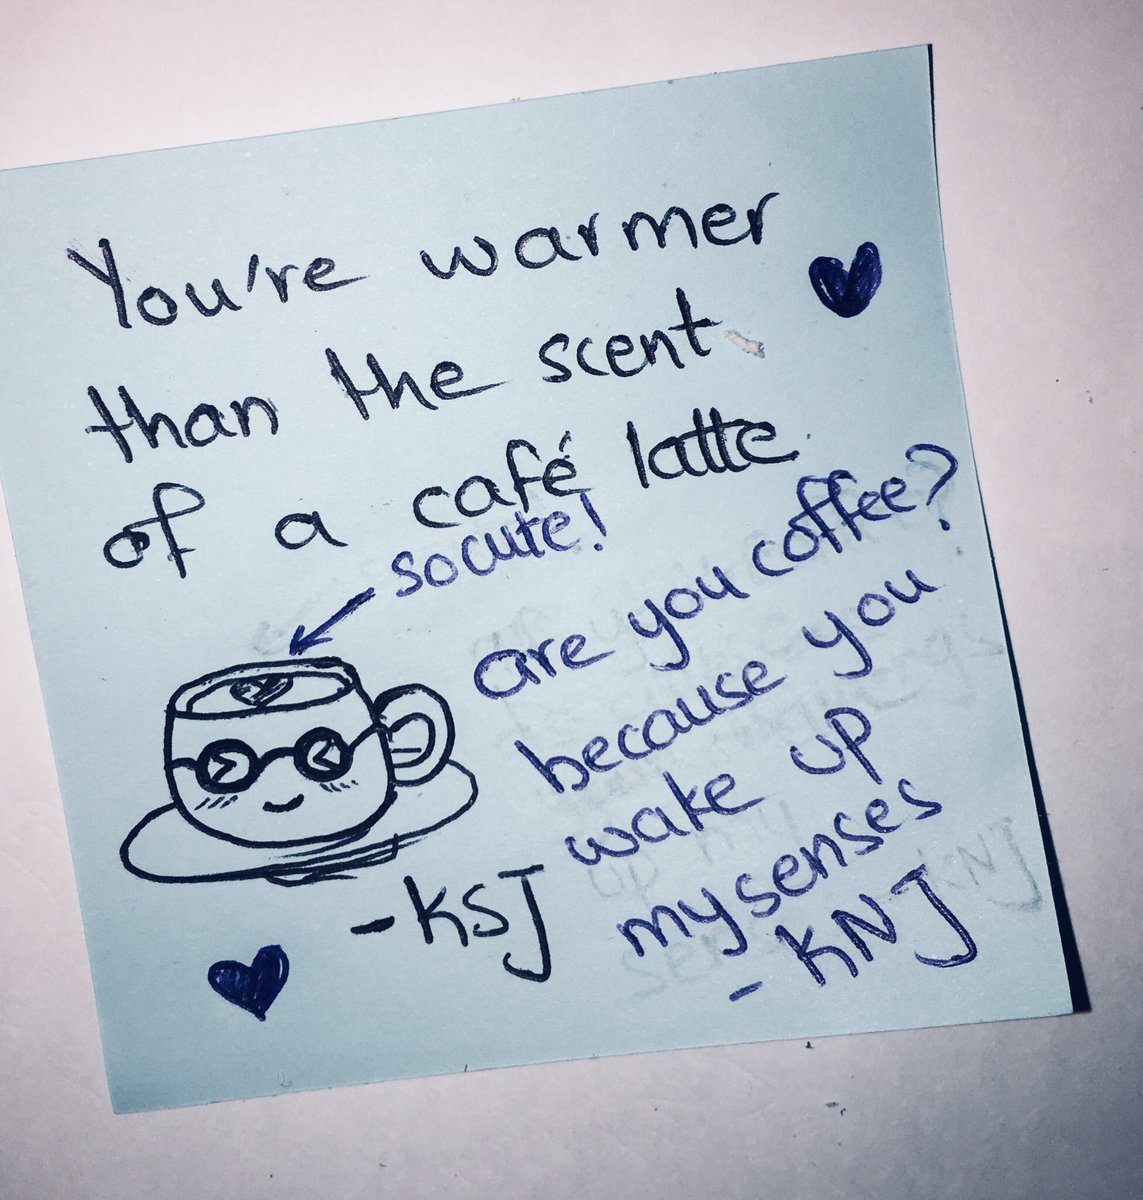 You're warmer
than the scent
of a café latte
so cute!
- KSJ
are you coffee?
because you
wake up
my senses
- KNJ